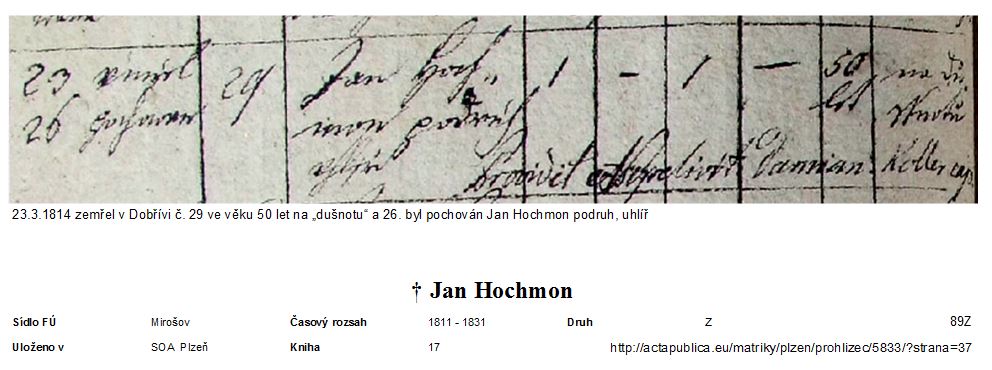 23 umřel 29 Jan Hoch„ 1 – 1 – 50 na du
26 pochovan mon podruh let ssnotu
uhliř Prowidil Damian Koller cap.
23.3.1814 zemřel v Dobřívi č. 29 ve věku 50 let na „dušnotu“ a 26. byl pochován Jan Hochmon podruh, uhlíř
† Jan Hochmon
Sídlo FÚ Mirošov Časový rozsah 1811 - 1831 Druh Z 89Z
Uloženo v SOA Plzeň Kniha 17 http://actapublica.eu/matriky/plzen/prohlizec/5833/?strana=37